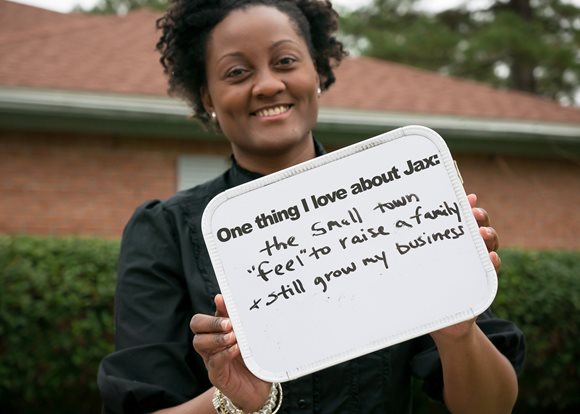 One thing I love about Jax:
the Small town
"feel" to raise a family
+ still grow my business